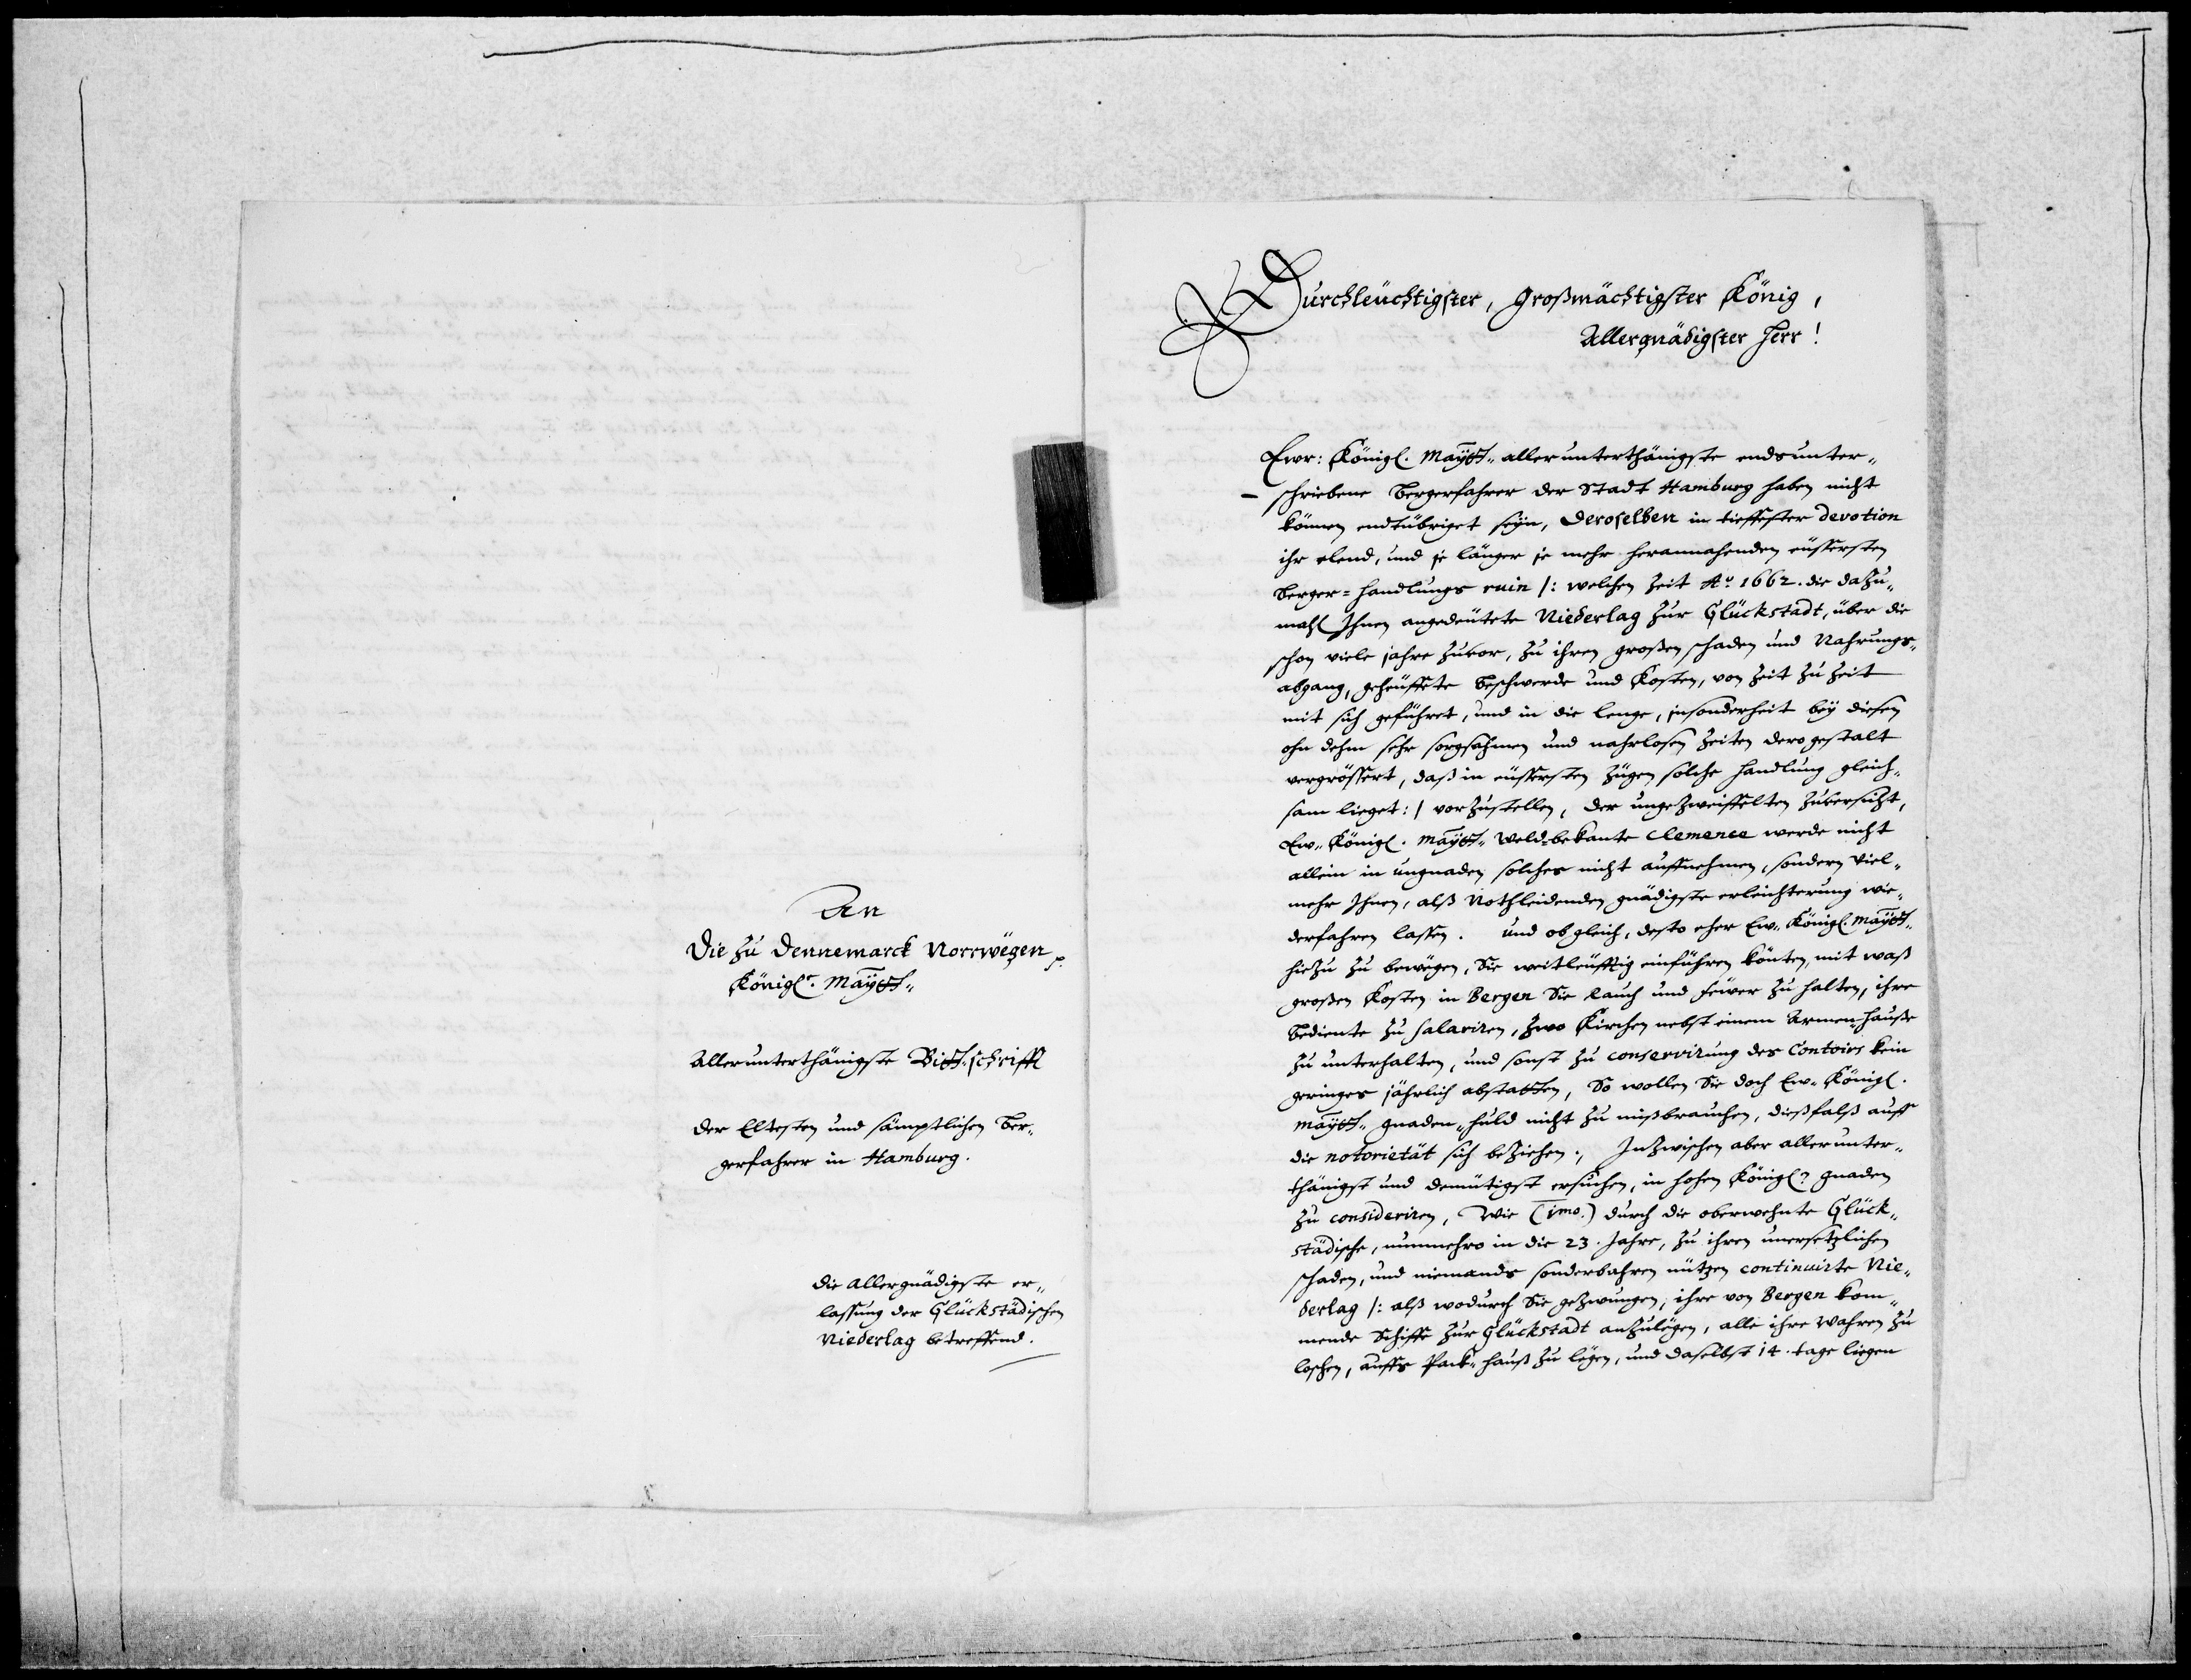 An
Die zu Dennemarck Norrwegen p.
Königl. Maÿtt„
Allerunterthänigste Bitt.schrifft
der Eltesten und sämptlichen Ber„
gerfahrer in Hamburg.
die allergnädigste er„
lassung der Glückstädischen
Niederlag betreffend.
Durchleüchtigster, Großmächtigster König,
Allergnädigster Herr!
Ewr: Königl. Maÿtt„ allerunterthänigste endsunter„
schriebene Bergerfahrer der Stadt Hamburg haben nicht
können endtübriget seÿn, Deroselben in tieffester devotion
ihr elend, und je länger je mehr herannahenden eüssersten
Berger=handlungs ruin /: welchen Zeit Aº 1662. die dazu„
mahl Ihnen angedeütete Niederlag zur Glückstadt, über die
schon viele jahre zuvor, zu ihren großen schaden und Nahrungs„
abgang, geheüffete Beschwerde und Kosten, von Zeit zu Zeit
mit sich geführet, und in die lenge, insonderheit beÿ diesen
ohn dehm sehr sorgsahmen und nahrlosen Zeiten dero gestalt
vergrössert, daß in eüssersten Zügen solche Handlung gleich„
sam lieget: / vorzustellen, der ungezweiffelten Zuversicht,
Ew„ Königl. Maÿtt„ Weld=bekante Clemence werde nicht
allein in ungnaden solches nicht auffnehmen, sondern viel„
mehr Ihnen, alß Nothleidenden gnädigste erleichterung wie„
derfahren lassen. Und ob gleich, desto eher Ew„ Königl. Maÿtt„
hiezu zu bewegen, Sie weitleüfftig einführen könten, mit waß
großen Kosten in Bergen Sie Rauch und Feüer zu halten, ihre
Bediente zu salariren, Zwo Kirchen nebst einem Armen=hauße
zu unterhalten, und sonst zu conservirung des Contoirs kein
geringes jährlich abstatten, So wollen Sie doch Ew„ Königl.
Maÿtt„ gnaden„huld nicht zu mißbrauchen, dießfalß auff
die notorietät sich beziehen., Inzwischen aber allerunter„
thänigst und demütigst ersuchen, in hohen Königl. gnaden
zu consideriren, Wie (jmo.) durch die oberwehnte Glück„
städische, nunmehro in die 23. Jahre, zu ihren unersetzlichen
schaden, und niemands sonderbahren nutzen continuirte Nie„
derlag /: alß wodurch Sie gezwungen, ihre von Bergen kom„
mende Schiffe zur Glückstadt anzulegen, alle ihre Wahren zu
loschen, auffs Pack„hauß zu legen, und daselbst 14. tage liegen